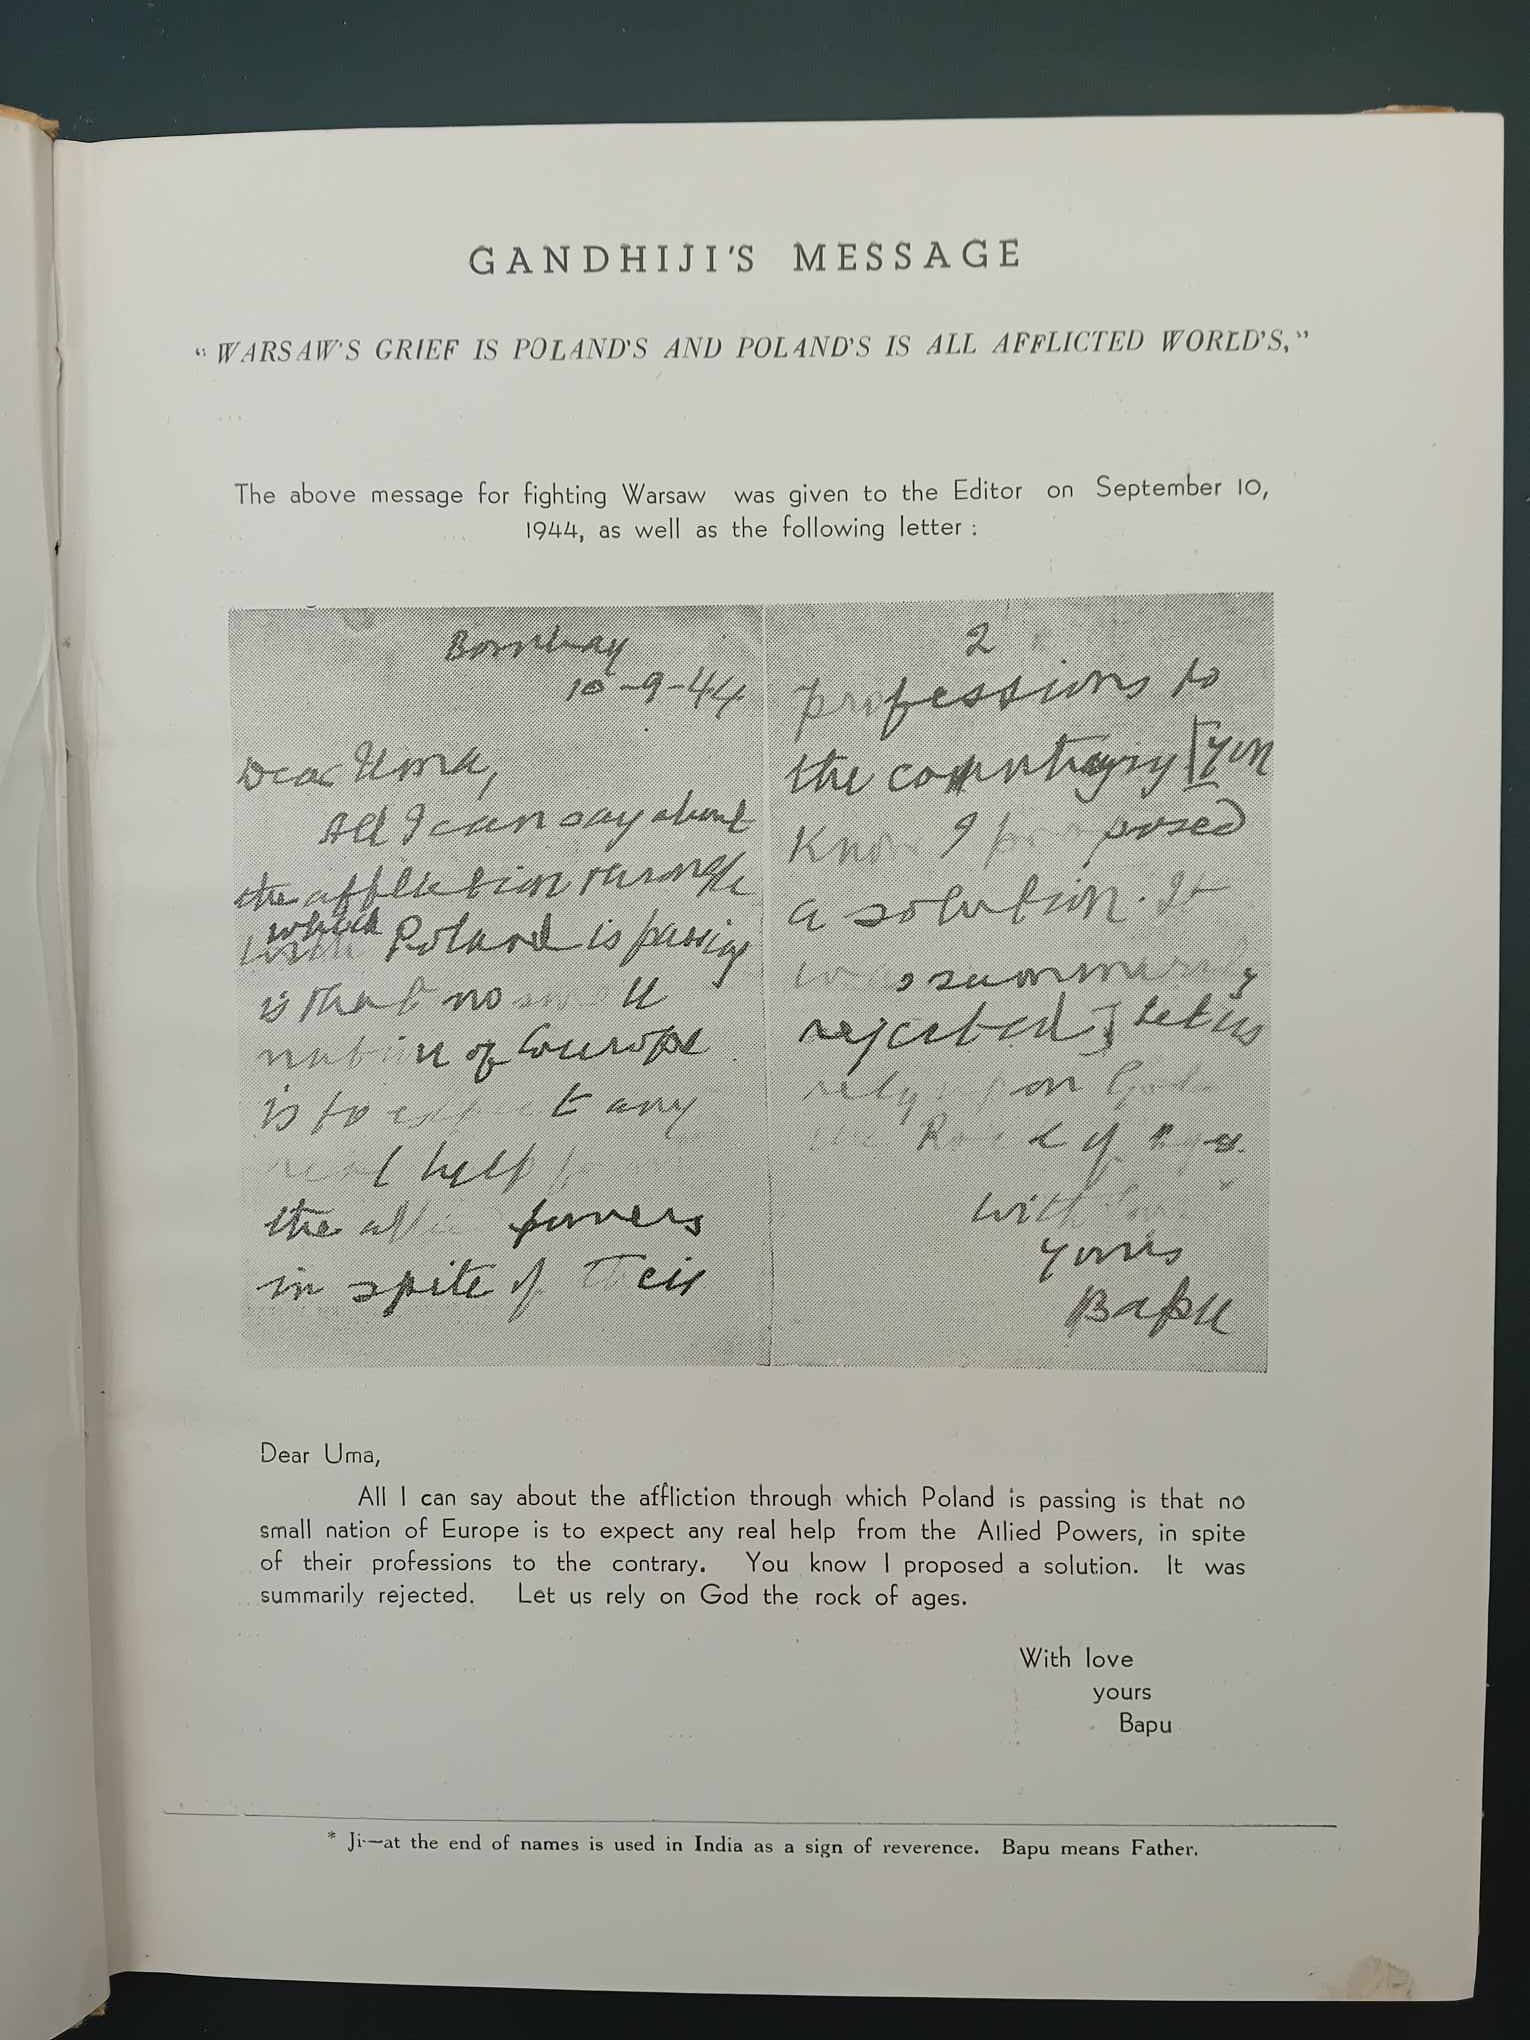 GANDHIJI'S MESSAGE
"WARSAW'S GRIEF IS POLAND'S AND POLAND'S IS ALL AFFLICTED WORLD'S,"
The above message for fighting Warsaw was given to the Editor on September 10,
1944, as well as the following letter :
Bombay
10-9-44
Dear Uma,
All I can say about
the affliction through
which Poland is passing
is that no small
nation of Europe
is to expect any
real help from
the allied powers
in spite of their
2
professions to
the contrary [You
know I proposed
a solution. It
was summarily
rejected] Let us
rely on God
the Rock of ages.
with love
yours
Bapu
Dear Uma,
All I can say about the affliction through which Poland is passing is that no
small nation of Europe is to expect any real help from the Allied Powers, in spite
of their professions to the contrary. You know I proposed a solution. It was
summarily rejected. Let us rely on God the rock of ages.
With love
yours
Bapu
* Ji—at the end of names is used in India as a sign of reverence. Bapu means Father.